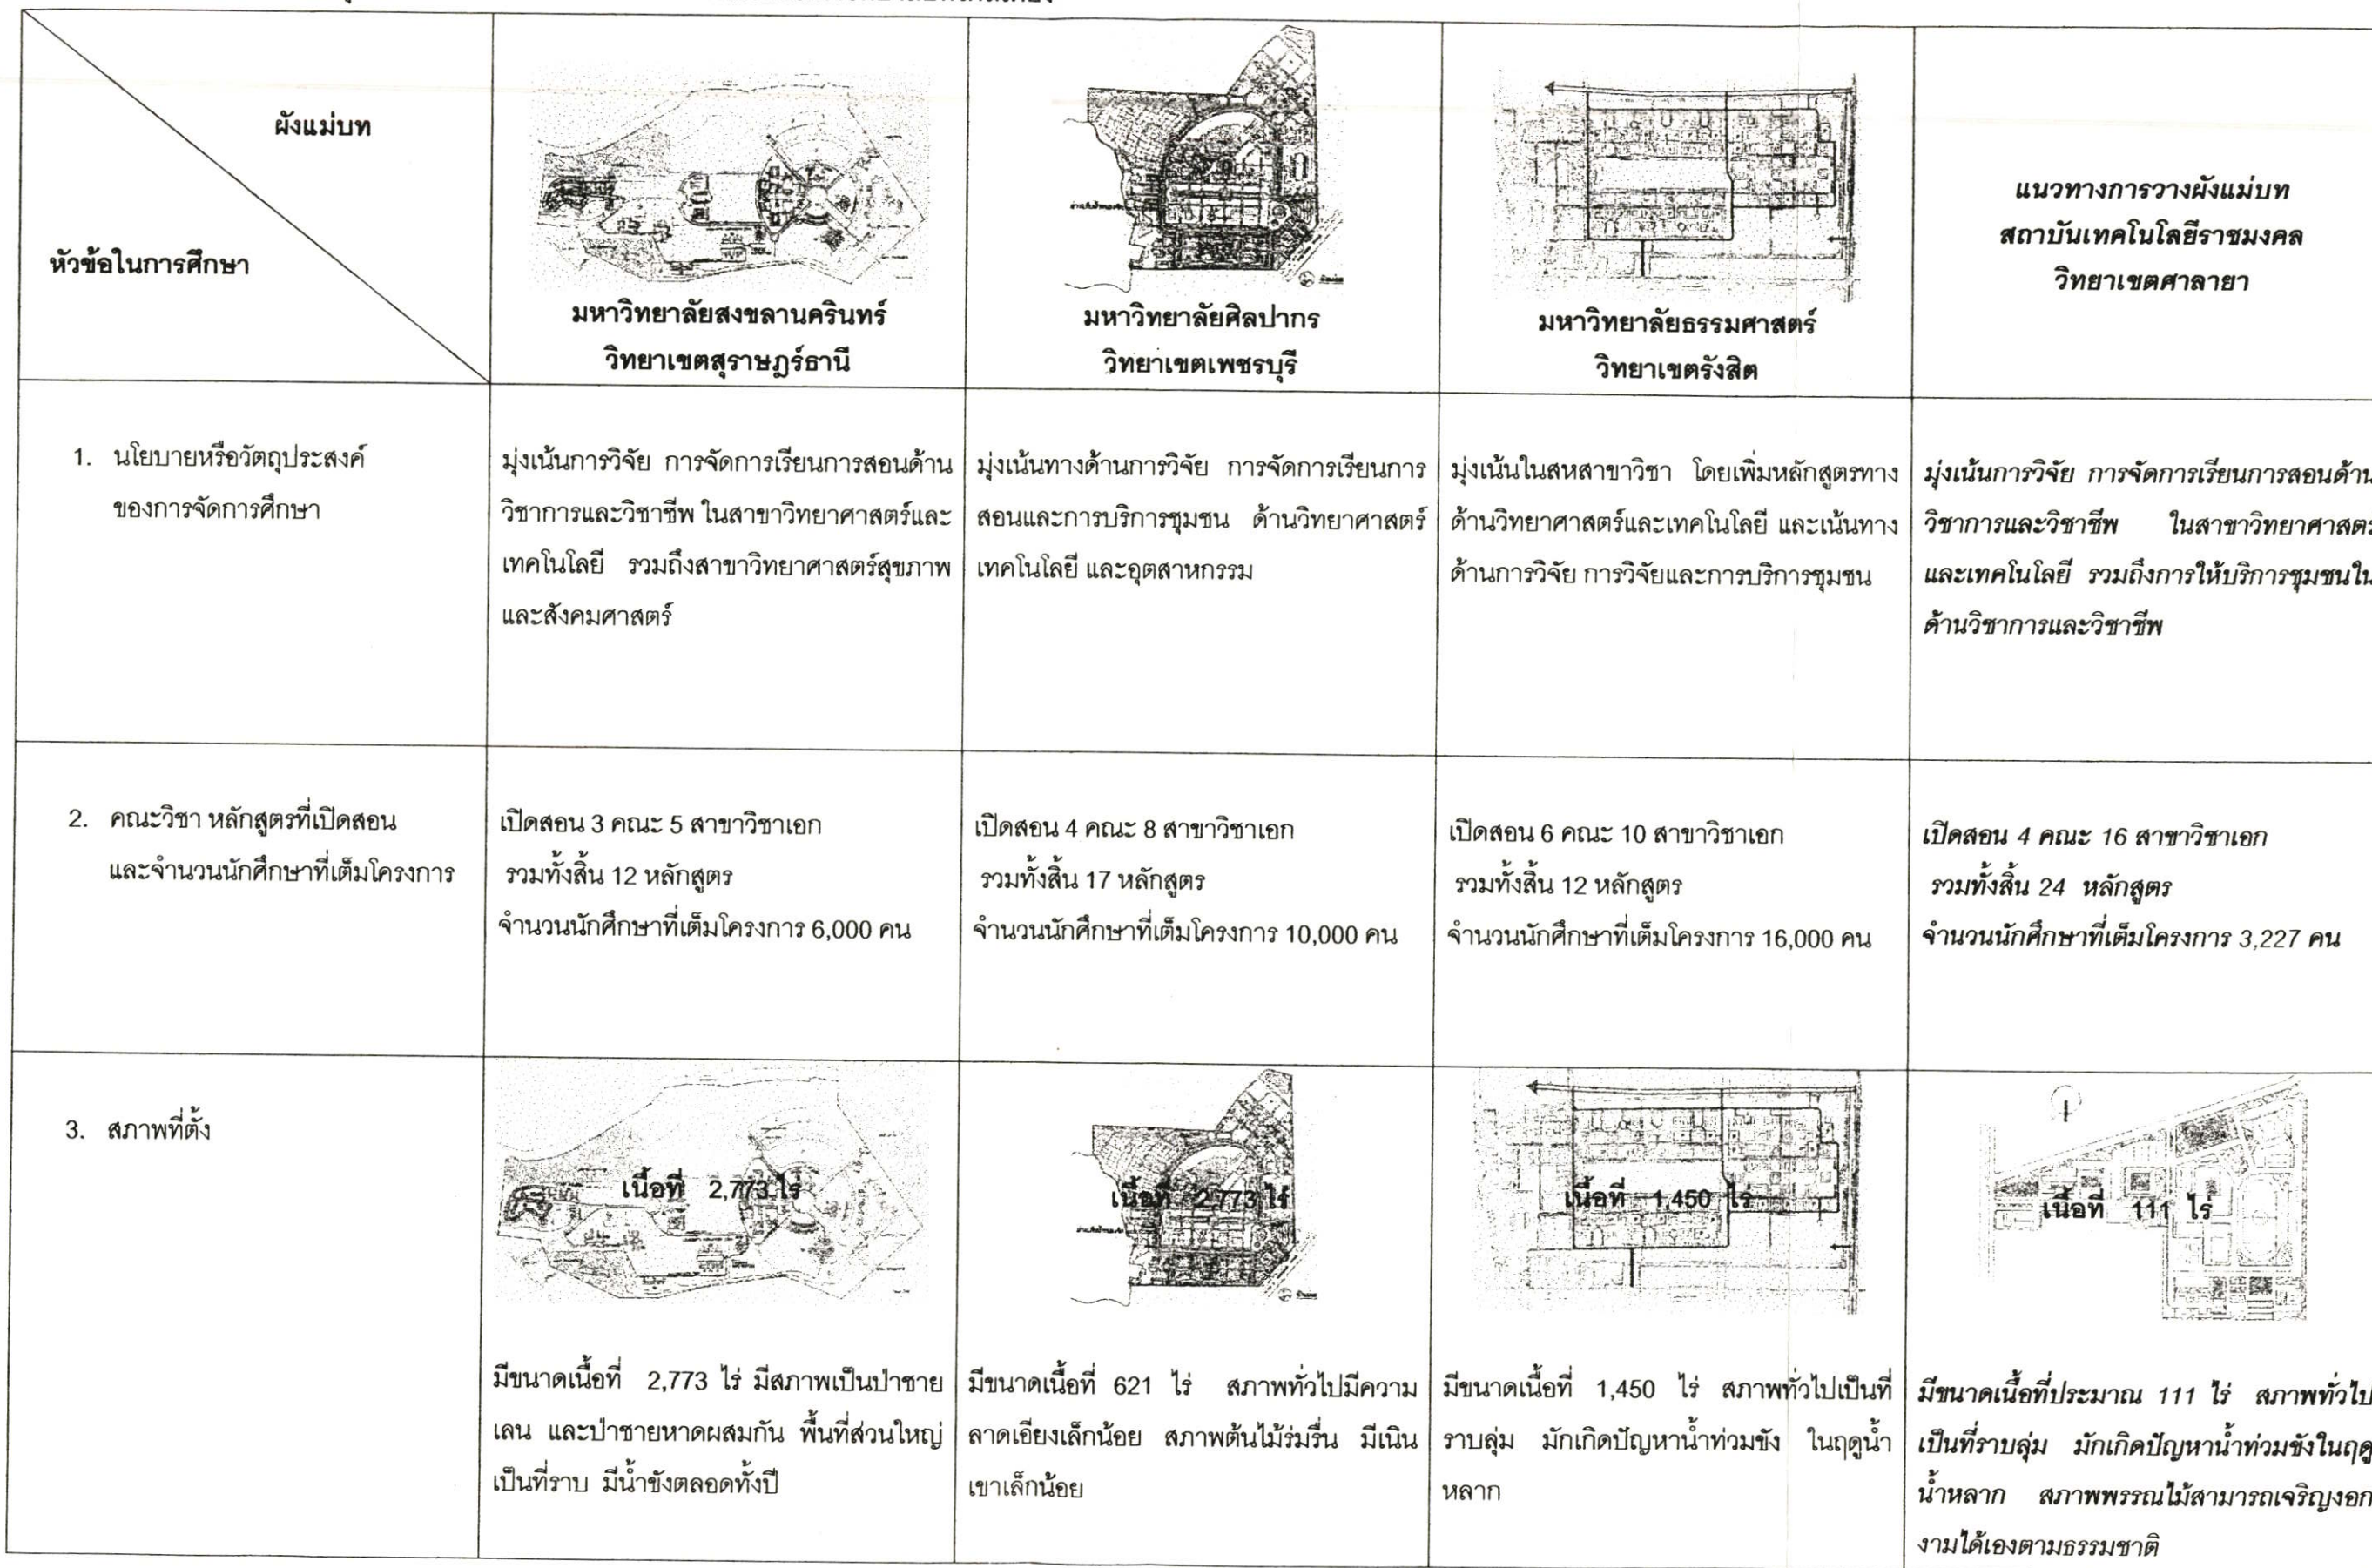 ผังแม่บท
หัวข้อในการศึกษา
มหาวิทยาลัยสงขลานครินทร์
วิทยาเขตสุราษฎร์ธานี
มหาวิทยาลัยศิลปากร
วิทยาเขตเพชรบุรี
มหาวิทยาลัยธรรมศาสตร์
วิทยาเขตรังสิต
แนวทางการวางผังแม่บท
สถาบันเทคโนโลยีราชมงคล
วิทยาเขตศาลายา
1. นโยบายหรือวัตถุประสงค์
ของการจัดการศึกษา
มุ่งเน้นการวิจัย การจัดการเรียนการสอนด้าน
วิชาการและวิชาชีพ ในสาขาวิทยาศาสตร์และ
เทคโนโลยี รวมถึงสาขาวิทยาศาสตร์สุขภาพ
และสังคมศาสตร์
มุ่งเน้นทางด้านการวิจัย การจัดการเรียนการ
สอนและการบริการชุมชน ด้านวิทยาศาสตร์
เทคโนโลยี และอุตสาหกรรม
มุ่งเน้นในสหสาขาวิชา โดยเพิ่มหลักสูตรทาง
ด้านวิทยาศาสตร์และเทคโนโลยี และเน้นทาง
ด้านการวิจัย การวิจัยและการบริการชุมชน
มุ่งเน้นการวิจัย การจัดการเรียนการสอนด้าน
วิชาการและวิชาชีพ ในสาขาวิทยาศาสตร
และเทคโนโลยี รวมถึงการให้บริการชุมชนใน
ด้านวิชาการและวิชาชีพ
2. คณะวิชา หลักสูตรที่เปิดสอน
และจำนวนนักศึกษาที่เต็มโครงการ
เปิดสอน 3 คณะ 5 สาขาวิชาเอก
รวมทั้งสิ้น 12 หลักสูตร
จำนวนนักศึกษาที่เต็มโครงการ 6,000 คน
เปิดสอน 4 คณะ 8 สาขาวิชาเอก
รวมทั้งสิ้น 17 หลักสูตร
จำนวนนักศึกษาที่เต็มโครงการ 10,000 คน
เปิดสอน 6 คณะ 10 สาขาวิชาเอก
รวมทั้งสิ้น 12 หลักสูตร
จำนวนนักศึกษาที่เต็มโครงการ 16,000 คน
เปิดสอน 4 คณะ 16 สาขาวิชาเอก
รวมทั้งสิ้น 24 หลักสูตร
จำนวนนักศึกษาที่เต็มโครงการ 3,227 คน
3. สภาพที่ตั้ง
เนื้อที่ 2,773 ไร่
มีขนาดเนื้อที่ 2,773 ไร่ มีสภาพเป็นป่าชาย
เลน และป่าชายหาดผสมกัน พื้นที่ส่วนใหญ่
เป็นที่ราบ มีน้ำขังตลอดทั้งปี
เนื้อที่ 2,773 ไร่
มีขนาดเนื้อที่ 621 ไร่ สภาพทั่วไปมีความ
ลาดเอียงเล็กน้อย สภาพต้นไม้ร่มรื่น มีเนิน
เขาเล็กน้อย
เนื้อที่ 1,450 ไร่
มีขนาดเนื้อที่ 1,450 ไร่ สภาพทั่วไปเป็นที่
ราบลุ่ม มักเกิดปัญหาน้ำท่วมขัง ในฤดูน้ำ
หลาก
เนื้อที่ 111 ไร่
มีขนาดเนื้อที่ประมาณ 111 ไร่ สภาพทั่วไป
เป็นที่ราบลุ่ม มักเกิดปัญหาน้ำท่วมขังในฤดู
น้ำหลาก สภาพพรรณไม้สามารถเจริญงอก
งามได้เองตามธรรมชาติ